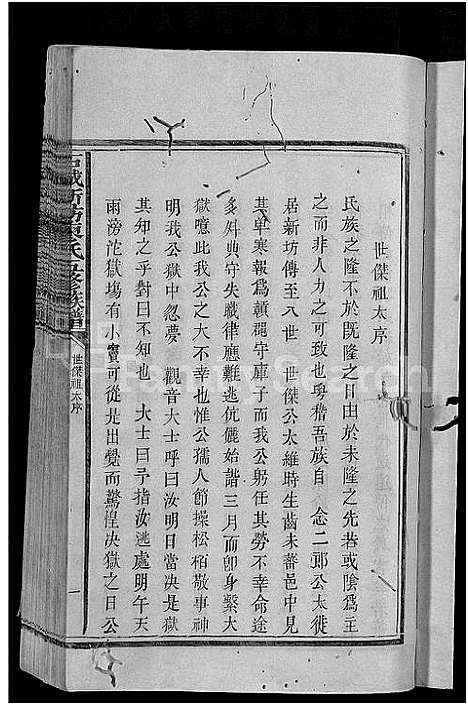 世傑祖太序
氏族之隆不於既隆之日由於未隆之先若或陰爲主
之而非人力之可致也粤稽吾族自 念二郎公太徙
居新坊傳至八世 世傑公太維時生齒未蕃邑中見
其單寒報爲贛穏守庫子而我公躬任其勞不幸命途
多舛典守失職律應難逃伉儷始諧三月而卽身繫大
獄噫此公之大不幸也惟公孺人節操松栢敬事神
明我公獄中忽夢 觀音大士呼曰汝明日當决是獄
其知之乎對曰不知也 大士曰予指汝逃處明午天
雨滂沱獄塲有小竇可從是出覺而驚惶决獄之日公
城新坊 氏 修族譜
世傑祖太序
一
FamilySearch